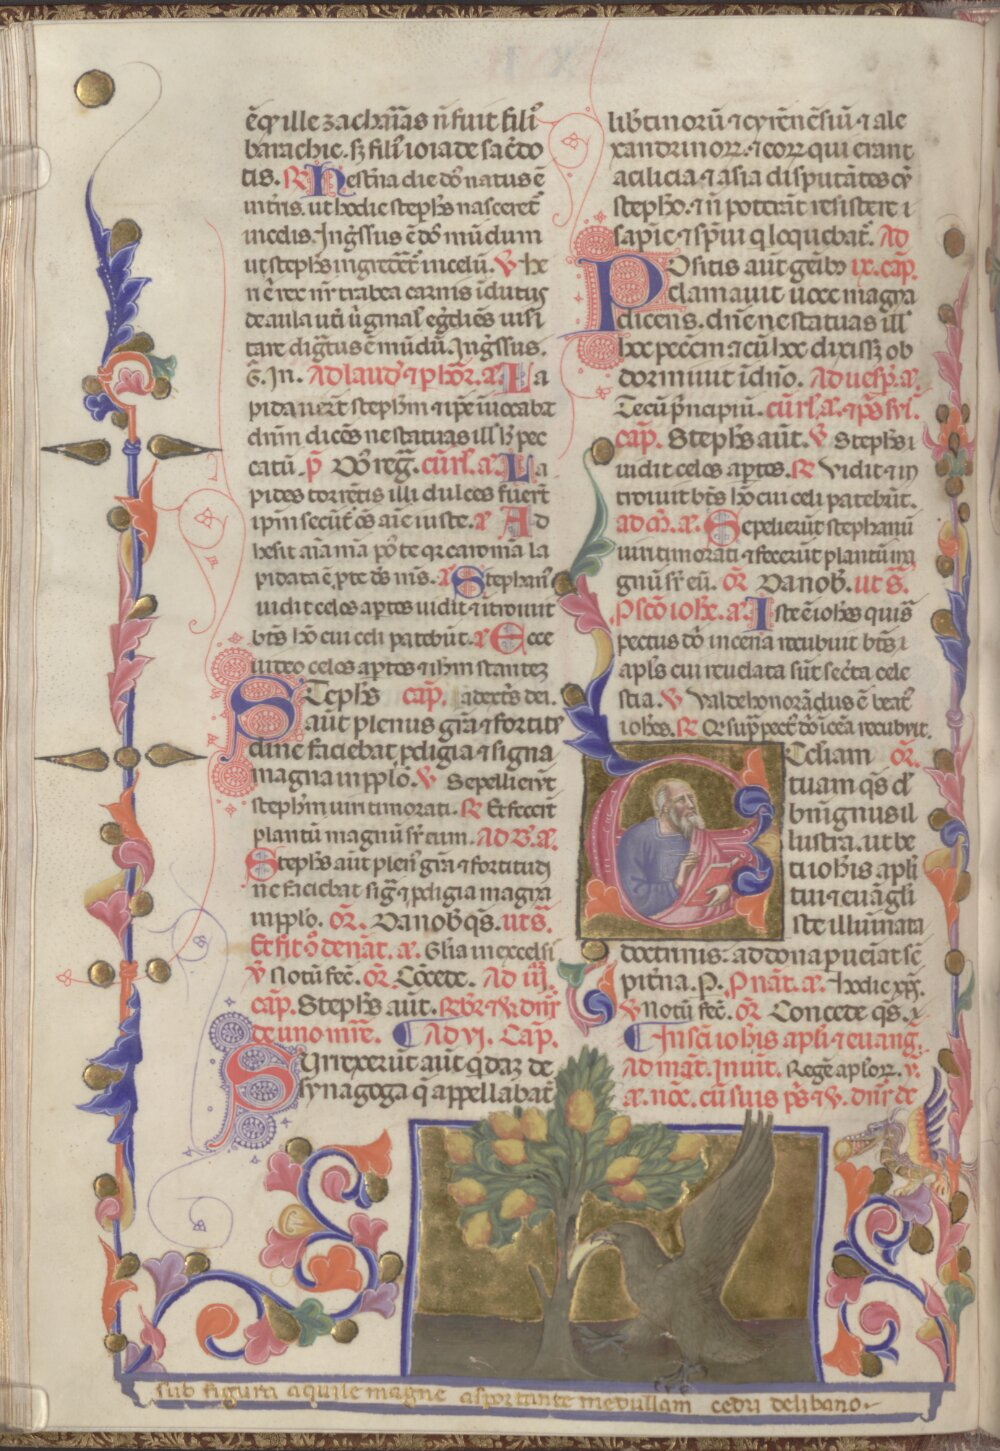 ēq̄ ille zacharias n̄ fuit fili᷒
barachie. sʒ fili᷒ ioiade sac̄do
tis. ℟ Hest̄na die dn̄s natus ē
in t̄ris. ut hodie steph̄s nasceret᷒
in celis. Ingr̄ssus ē dn̄s mūdum
ut steph̄s ingrederet᷒ in celū. ℣ hic
de aula
tare dignatus ē mūdū. Ingr̄ssus.
Ad laud᷒ ⁊ p̱ hōr. a. La
pidauer̄t steph̄m ⁊ ip̄e īuocabat
dn̄m dicēs ne statuas ill᷒ h̄ pec
catū. p̄ Dn̄s reg̃. cūrl. a. La
pides torrētis illi dulces fuer̄t
ip̄m secūt᷒ ōs aīe iuste. a Ad
hesit aīa mā pꝰ te qr caro mīa la
pidata ē p̱ te ds ms. a Stephan᷒
uidit celos ap̱tos uidit ⁊ ītroiuit
bt̄s hō cui celi patebūt. a Ecce
uideo celos ap̱tos ⁊ ih̄m stantez
Steph̄s cap̄. a dext̄s dei.
aūt plenus gr̄a ⁊ fortitu
dine faciebat p̱digia ⁊ signa
magna in pp̄lo. ℣ Sepellierūt
steph̄m uiri timorati. ℟ Et fecer̄t
planctū magnū sr̄ eum. Ad B. a.
Steph̄s aūt plen᷒ gr̄a ⁊ fortitudi
ne faciebat sig̃ ⁊ p̱digia magna
in pp̄lo. or̄. Da nob᷒ qs. ut s̄.
Et fit ꝯ̄ de nāt. a. Gl̄ia in excelsi
℣ Notū fec̄. or̄ Cōcede. Ad iij.
cap̄. Steph̄s aūt. ℟br̄ ⁊ ℣. dn̄r
de uno mr̄e. Ad vj. Cap̄.
Surrexerūt aūt q̄daz de
synagoga q̄ appellabat᷒
lib̄tinorū ⁊ cyrenēsiū ⁊ ale
xandrinorꝝ. ⁊ eorꝝ qui erant
a cilicia ⁊ asia disputātes cū̄
stepho. ⁊ n̄ poterāt resistere
sapīe ⁊ sp̄ui q̄ loquebat᷒. Ad
Positis aūt genibꝰ ix. cap̄.
clamauit uoce magna
dicens. dn̄e ne statuas ill᷒
hoc pecc̄m ⁊ cū hoc dixissʒ ob
dormiuit ī dn̄o. Ad uesp̱. a.
Tecū p̱ncipiū. cūrl. a. ⁊ ps̄
cap̄. Steph̄s aūt. ℣ Steph̄s
uidit celos ap̱tos. ℟ Vidit ⁊ in
troiuit bt̄s hō cui celi patebūt.
ad m̄. a. Sepelierūt stephanū
uiri timorati ⁊ fecerūt planctū ma
gnū sr̄ eū. or̄ Da nob̄. ut s̄.
P scō ioh̄e. a. Iste ē ioh̄es qui sr̄
pectus dn̄i in cena recubuit bt̄s
apl̄s cui reuelata sūt sec̄ta cele
stia. ℣ Valde honorādus ē beat᷒
ioh̄es. ℟ Qi sup̱ pect᷒ dn̄i ī cēa recubuit.
Ecc̄liam or̄.
tuam qs dn̄e
benignus il
lustra. ut be
ti ioh̄is apl̄i
tui ⁊ euāgli
ste illuminata
doctrinis. ad dona p̱ueniat sē
pit̄na. P. P nāt. a. Hodie xp̄s.
℣ Notū fec̄. or̄ Concede qs.
In sc̄i ioh̄is apl̄i ⁊ euang̃.
Ad māt. Inuit. Regē aplorꝝ. v.
a. noc̄. cū suis ps̄ ⁊ ℣. dn̄r de
sub figura aquile magne asportante medullam cedri de libano